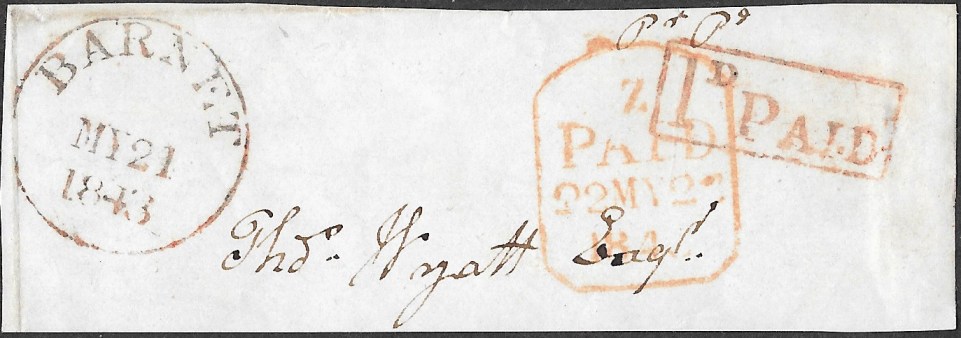 BARNET
MY 21
1843
Pd Pd
Z
PAID
22MY22
184
1D PAID
Thos. Wyatt Esqr.